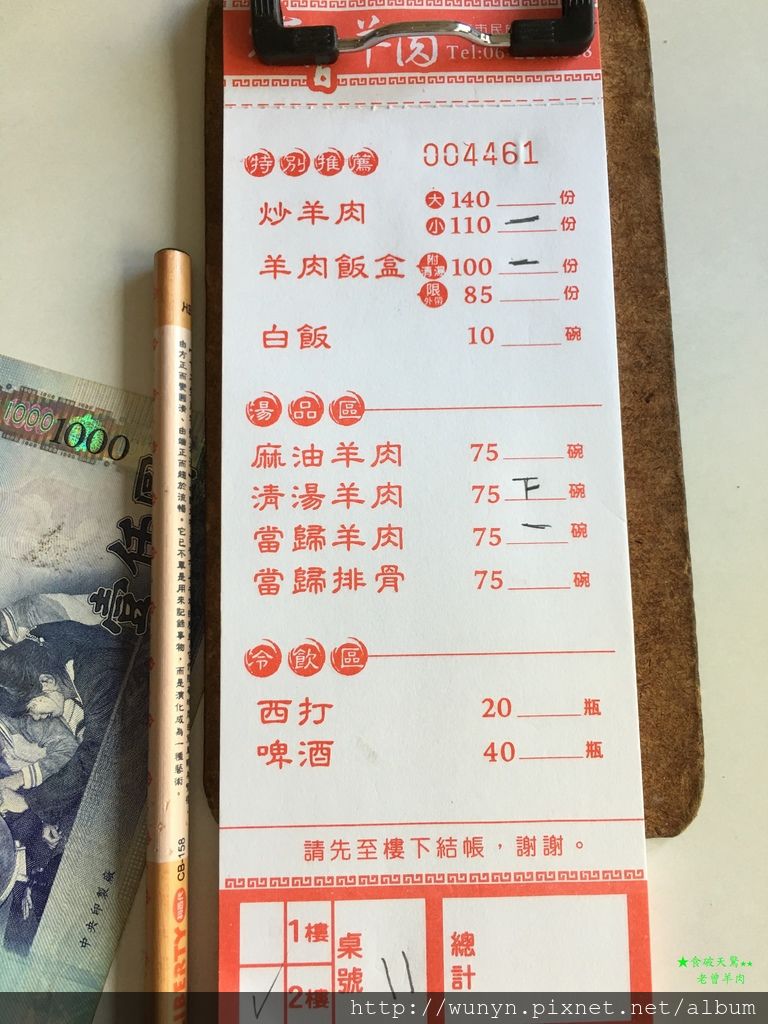 羊肉
Tel:06
特別推薦 004461
炒羊肉 大 140 份
小 110 一 份
羊肉飯盒 附清湯 100 一 份
限外帶 85 份
白飯 10 碗
湯品區
麻油羊肉 75 碗
清湯羊肉 75 下 碗
當歸羊肉 75 一 碗
當歸排骨 75 碗
冷飲區
西打 20 瓶
啤酒 40 瓶
請先至樓下結帳,謝謝。
1樓
✓ 2樓
桌號 11
總計
1000 1000
壹仟圓
中央印製廠
由方正而變圓湊、由端正而趨於流暢。它已不單是用來記錄事物,而是演化成為一種藝術。
CB-158
LIBERTY
★食破天驚★★
老曾羊肉
http://wunyn.pixnet.net/album